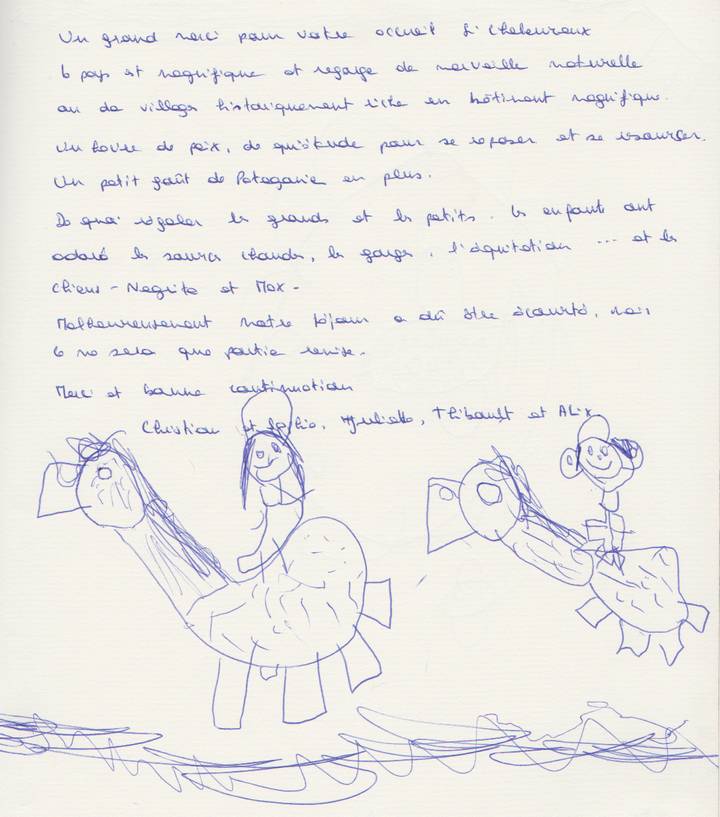 Un grand merci pour votre accueil si chaleureux
Ce pays est magnifique et regorge de merveille naturelle
ou de villages historiquement riche en bâtiment magnifique.
Un havre de paix, de quiétude pour se reposer et se ressourcer.
Un petit goût de Patagonie en plus.
De quoi régaler les grands et les petits. Les enfants ont
adoré les sources chaudes, les gorges, l'équitation ... et les
chiens - Negrita et Max -
Malheureusement notre séjour a dû être écourté, mais
ce ne sera que partie remise.
Merci et bonne continuation
Christian et Sophie, Juliette, Thibault et Alix